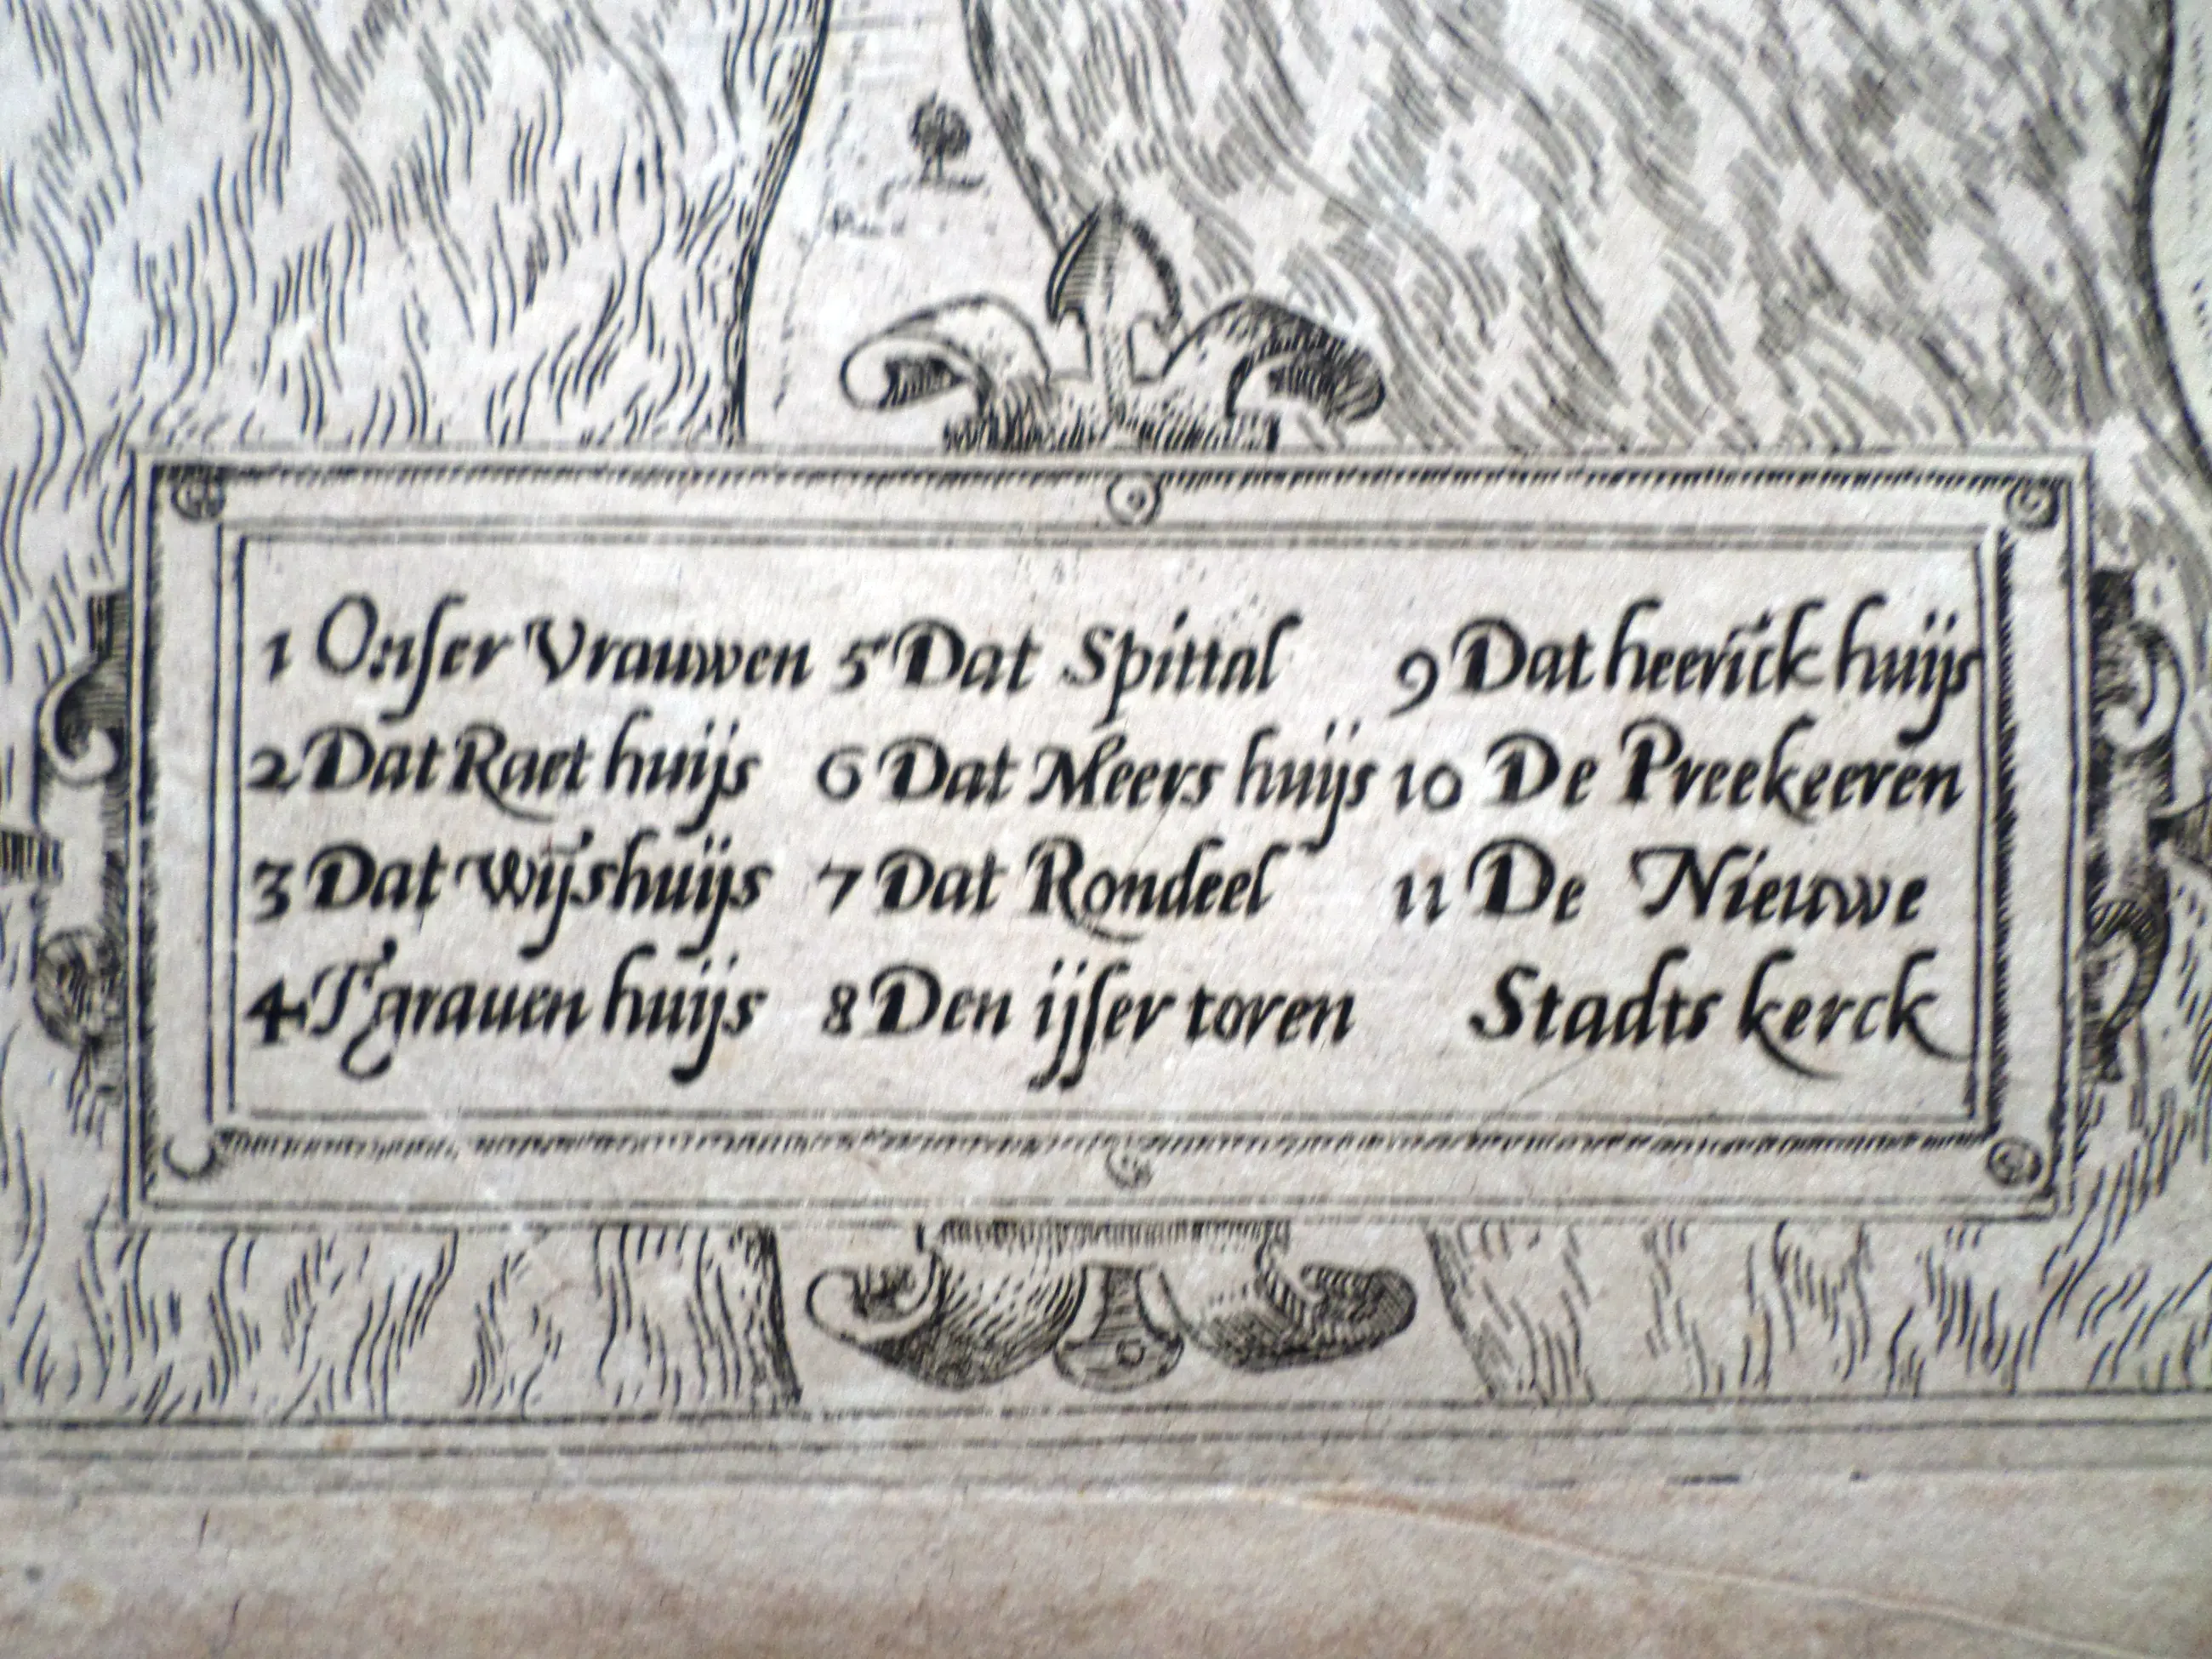 1 Onſer Vrauwen
2 Dat Raet huijs
3 Dat Wijshuijs
4 T'grauen huijs
5 Dat Spittal
6 Dat Meers huijs
7 Dat Rondeel
8 Den ijſer toren
9 Dat heerick huijs
10 De Preekeeren
11 De Nieuwe
Stadts kerck